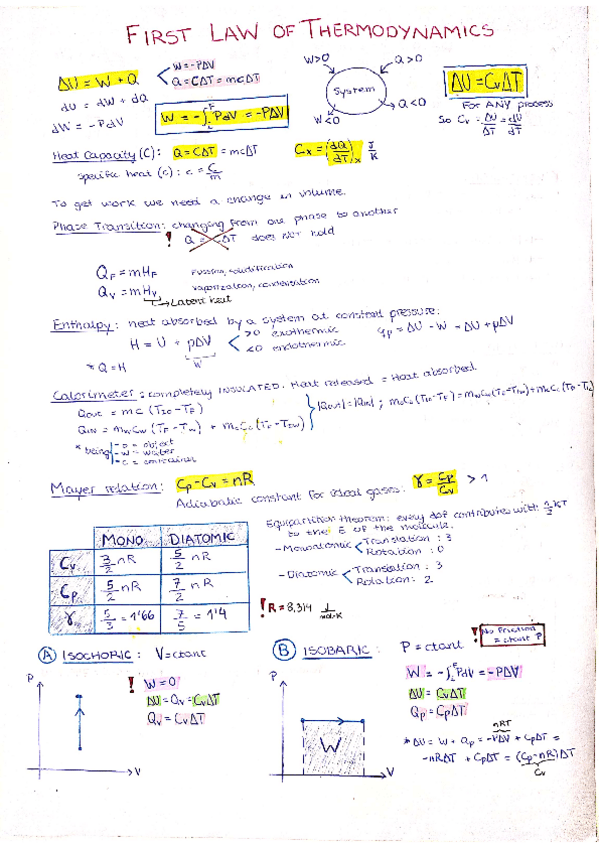 FIRST LAW OF THERMODYNAMICS
ΔU = W + Q
W = -PΔV
Q = CΔT = mcΔT
dU = dW + dQ
dW = -PdV
W = -∫PdV = -PΔV
W>0
Q>0
System
W<0
Q<0
ΔU = CvΔT
For ANY process
So Cv = ΔU/ΔT = dU/dT
Heat Capacity (C): Q = CΔT = mcΔT
Cx = (dQ/dT)x J/K
Specific heat (c): c = C/m
To get work we need a change in volume.
Phase Transition: changing from one phase to another
! Q = CΔT does NOT hold
QF = mHF fusion, solidification
Qv = mHv vaporization, condensation
Latent heat
Enthalpy: heat absorbed by a system at constant pressure:
H = U + pΔV
>0 exothermic
<0 endothermic
qp = ΔU - W = ΔU + pΔV
W
* Q = H
Calorimeter: completely INSULATED. Heat released = Heat absorbed.
Qout = mc (TIO - TF)
Qin = mwcw (TF - Tw) + mccc (TF - TIW)
|Qout| = |Qin| ;
* being
- o = object
- w = water
- c = container
Mayer relation: Cp - Cv = nR
Adiabatic constant for ideal gases: γ = Cp/Cv > 1
MONO DIATOMIC
Cv 3/2 nR 5/2 nR
Cp 5/2 nR 7/2 nR
γ 5/3 = 1'66 7/5 = 1'4
Equipartition theorem: every dof contributes with 1/2 KT
to the E of the molecule.
- Monoatomic
Translation: 3
Rotation: 0
- Diatomic
Translation: 3
Rotation: 2
! R = 8,314 J/mol·K
A ISOCHORIC: V = ctant
P
V
! W = 0
ΔU = Qv = CvΔT
Qv = CvΔT
B ISOBARIC: P = ctant
! No friction
= ctant P
P
W
V
W = -∫PdV = -PΔV
ΔU = CvΔT
Qp = CpΔT
nRT
* ΔU = W + Qp = -PΔV + CpΔT =
-nRΔT + CpΔT = (Cp - nR)ΔT
Cv